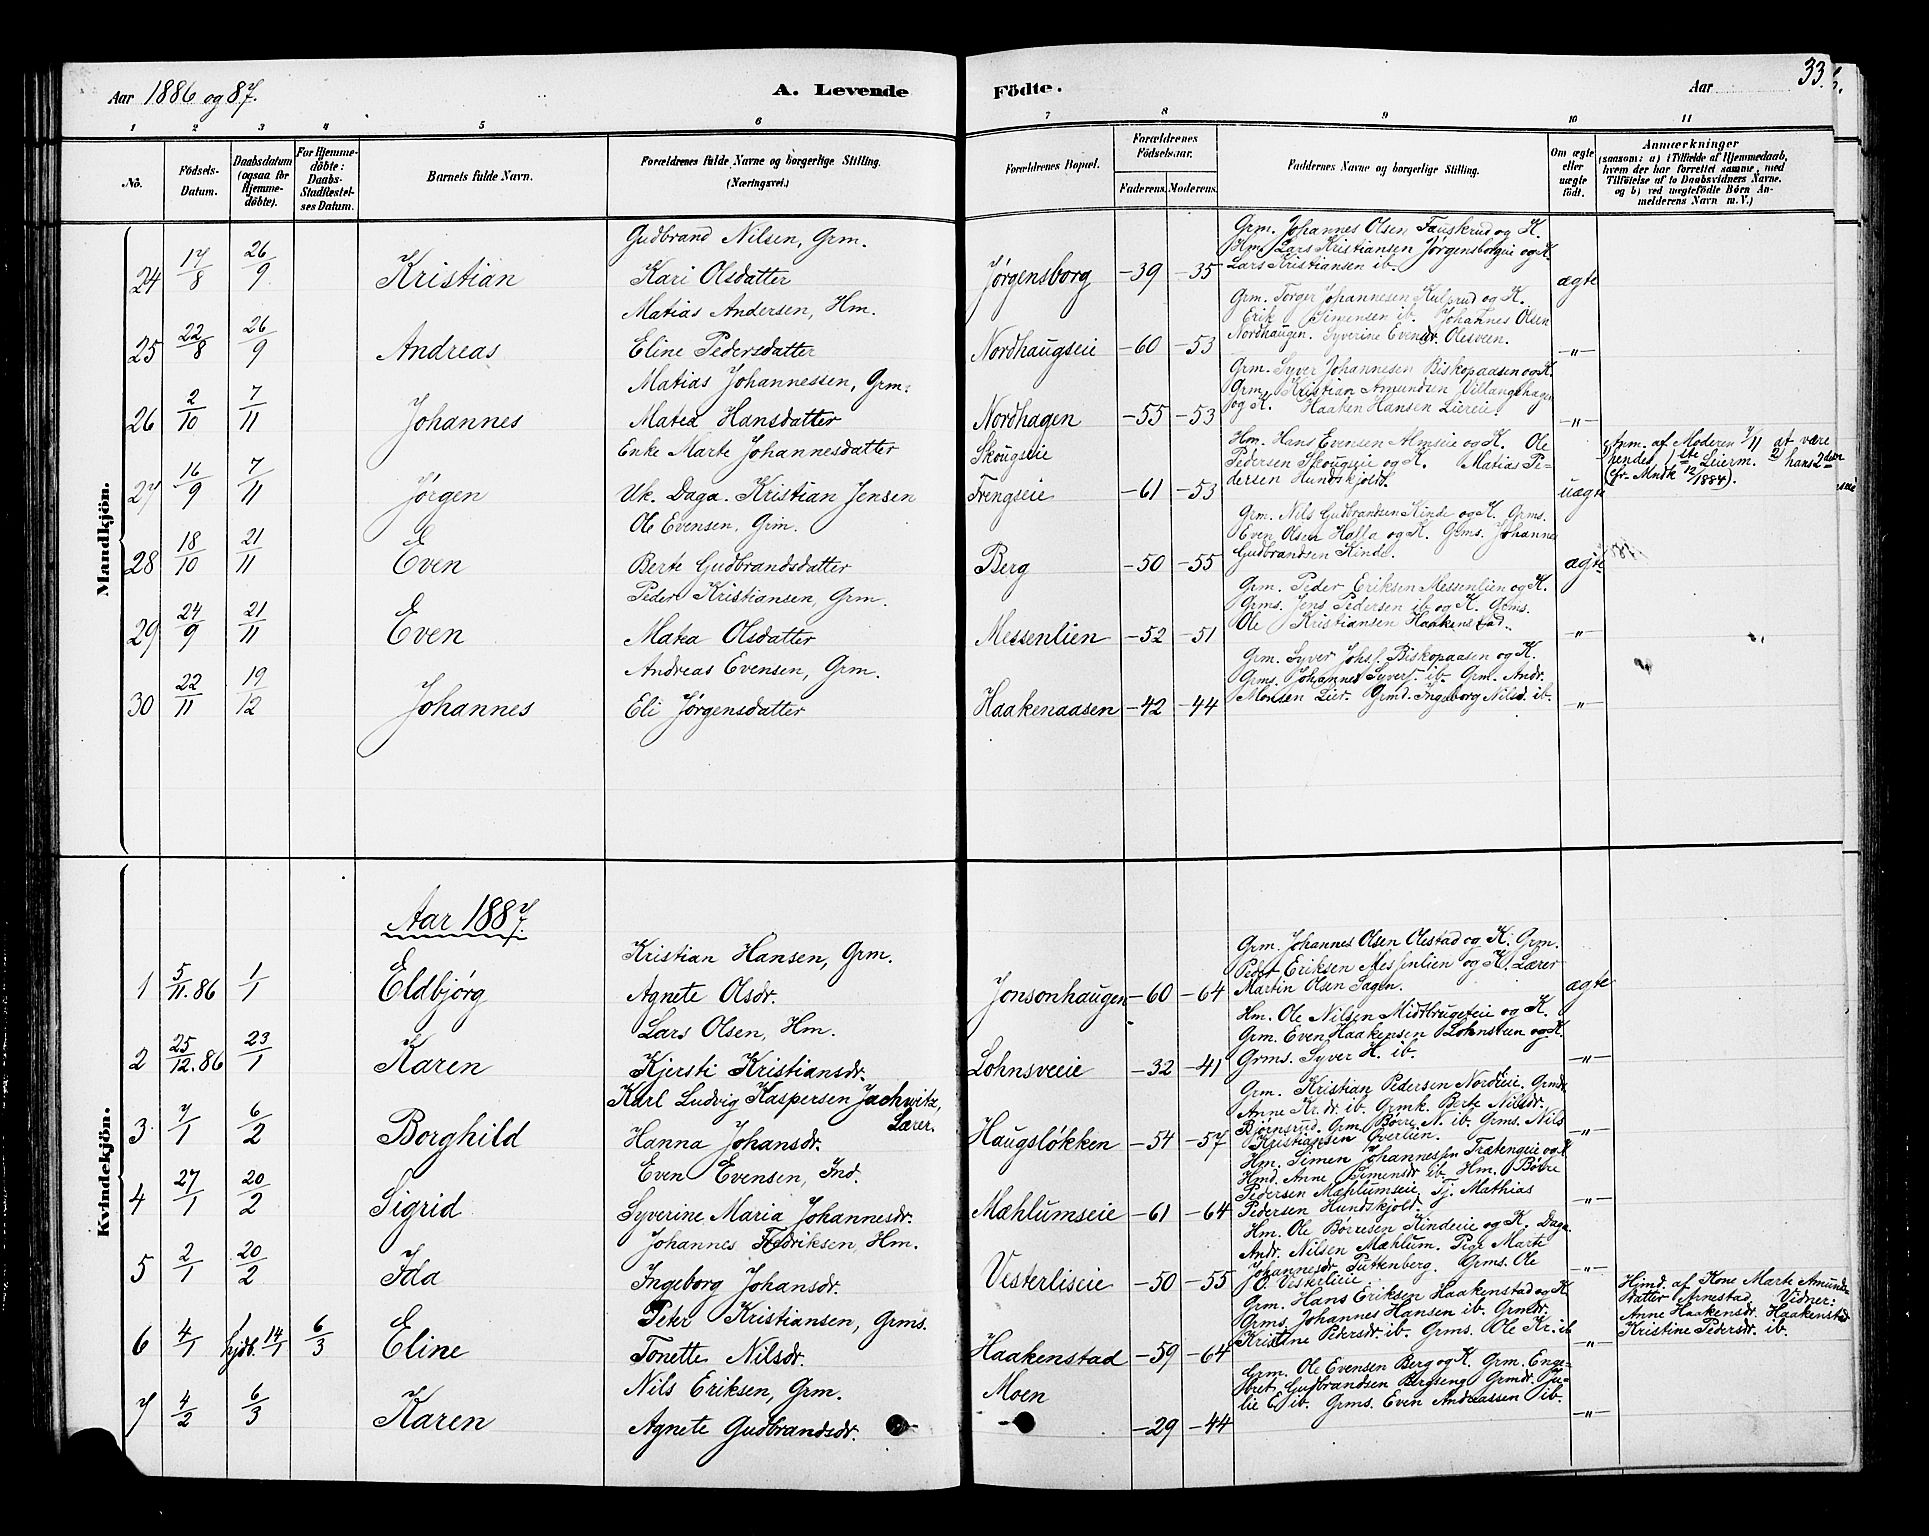 Aar 1886 og 87.
A. Levende
Födte.
Aar
33.
1 2 3 4 5 6 7 8 9 10 11
No.
Födsels-Datum.
Daabsdatum (ogsaa for Hjemmedöbte).
For Hjemmedöbte: Daabs-Stadfæstelses Datum.
Barnets fulde Navn.
Forældrenes fulde Navne og borgerlige Stilling. (Næringsvei.)
Forældrenes Bopæl.
Forældrenes Födselsaar.
Faderens. Moderens.
Faddernes Navne og borgerlige Stilling.
Om ægte eller uægte födt.
Anmærkninger
(saasom: a) i Tilfælde af Hjemmedaab, hvem der har forrettet samme, med Tilföielse af to Daabsvidners Navne, og b) ved uægtefödte Börn Anmelderens Navn m. V.)
Mandkjön.
24 17/8 26/9 Kristian
Gudbrand Nilsen, Grm.
Kari Olsdatter
Jørgensborg -39 -35
Grm. Johannes Olsen Fauskrud og K.
Hm. Lars Kristiansen Jørgensborgeie og K.
Lars Kristiansen ib.
ægte
25 22/8 26/9 Andreas
Matias Andersen, Hm.
Eline Pedersdatter
Nordhaugseie -60 -53
Grm. Torger Johannesen Kulprud og K.
Erik Simensen ib. Johannes Olsen
Nordhaugen. Syverine Evensdr. Olesveen.
-"-
26 2/10 7/11 Johannes
Matias Johannessen, Grm.
Matea Hansdatter
Nordhagen -55 -53
Grm. Syver Johannesen Biskopaasen og K.
Grm. Kristian Amundsen Villangshagen
og K. Haaken Hansen Liereie.
-"-
27 16/9 7/11 Jørgen
Enke Marte Johannesdatter
Uk. Daga. Kristian Jensen
Skougseie
Frengseie -61 -53
Hm. Hans Evensen Almseie og K. Ole
Pedersen Skougseie og K. Matias Pe-
dersen Hundskjold.
uægte
Anm. af Moderen 7/11 at være
hendes 1ste Leierm. hans 2den
(cfr. Mndk 12/1884).
28 18/10 21/11 Even
Ole Evensen, Grm.
Berte Gudbrandsdatter
Berg -50 -55
Grm. Nils Gudbrandsen Kinde og K. Grms.
Even Olsen Halla og K. Grms. Johannes
Gudbrandsen Kinde.
ægte
29 24/9 21/11 Even
Peder Kristiansen, Grm.
Matea Olsdatter
Messenlien -52 -51
Grm. Peder Eriksen Messenlien og K.
Grms. Jens Pedersen ib og K. Grms.
Ole Kristiansen Haakenstad.
-"-
30 22/11 19/12 Johannes
Andreas Evensen, Grm.
Eli Jørgensdatter
Haakenaasen -42 -44
Grm. Syver Johs. Biskopaasen og K.
Grms. Johannes Syvers. ib. Grm. Andr.
Monsen Lier. Grmd. Ingeborg Nilsd. ib.
-"-
Kvindekjön.
Aar 1887.
1 5/11.86 1/1 Eldbjørg
Kristian Hansen, Grm.
Agnete Olsdr.
Jonsonhaugen -60 -64
Grm. Johannes Olsen Olestad og K. Grm.
Peder Eriksen Messenlien og K. Lærer
Martin Olsen Sagen.
ægte
2 25/12.86 23/1 Karen
Lars Olsen, Hm.
Kjersti Kristiansdr.
Lohnsveeie -32 -41
Hm. Ole Nilsen Midtbrugeteie og K.
Grm. Even Haakensen Lohnsteen og K.
Grms. Syver H. ib.
-"-
3 7/1 6/2 Borghild
Karl Ludvig Kaspersen Jachwitz,
Lærer.
Hanna Johansdr.
Haugsløkken -54 -57
Grm. Kristian Pedersen Nordeie. Grmdr.
Anne Kr.dr. ib. Grmk. Berte Nilsdr.
Bjørnsrud. Grm. Børre N. ib. Grms. Nils
Kristiansen Overlien.
-"-
4 27/1 20/2 Sigrid
Even Evensen, Ind.
Syverine Maria Johannesdr.
Mæhlumseie -61 -64
Hm. Simen Johannessen Trætengeie og K
Hmd. Anne Simensdr ib. Hm. Børre
Pedersen Mæhlumseie. Tj. Mathias
Pedersen Hundskjold.
-"-
5 2/1 20/2 Ida
Johannes Fredriksen, Hm.
Ingeborg Johansdr.
Vesterlieeie -50 -55
Hm. Ole Børresen Kindeeie og K. Daga.
Andr. Nilsen Mæhlum. Pige Marte
Johannesdr Puttenberg. Grms. Ole
O. Vesterlieie
-"-
6 4/1 hjdb. 14/1 6/3 Eline
Peter Kristiansen, Grms.
Tonette Nilsdr.
Haakenstad -59 -64
Grm. Hans Eriksen Haakenstad og K
Grms. Johannes Hansen ib. Grmdr.
Kristine Pedersdr. ib. Grms. Ole Kr. ib
-"-
Hjmd. af Kone Marte Amunds
datter Arnestad. Vidner:
Anne Haakensdr. Haakenstad
Kristine Pedersdr. ib.
7 4/2 6/3 Karen
Nils Eriksen, Grm.
Agnete Gudbrandsdr.
Moen -29 -44
Grm. Ole Evensen Berg og K. Grm. Enge-
bret Gudbrandsen Bergseng. Grmdr. Ju-
lie E. ib. Grms. Even Andreassen ib.
-"-